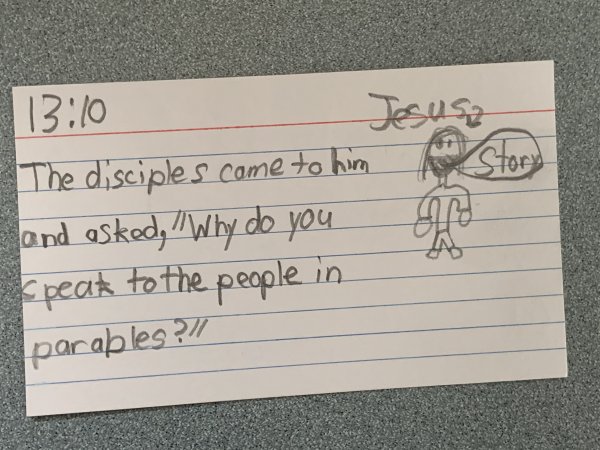 13:10
Jesus
Story
The disciples came to him
and asked, "Why do you
speak to the people in
parables?"